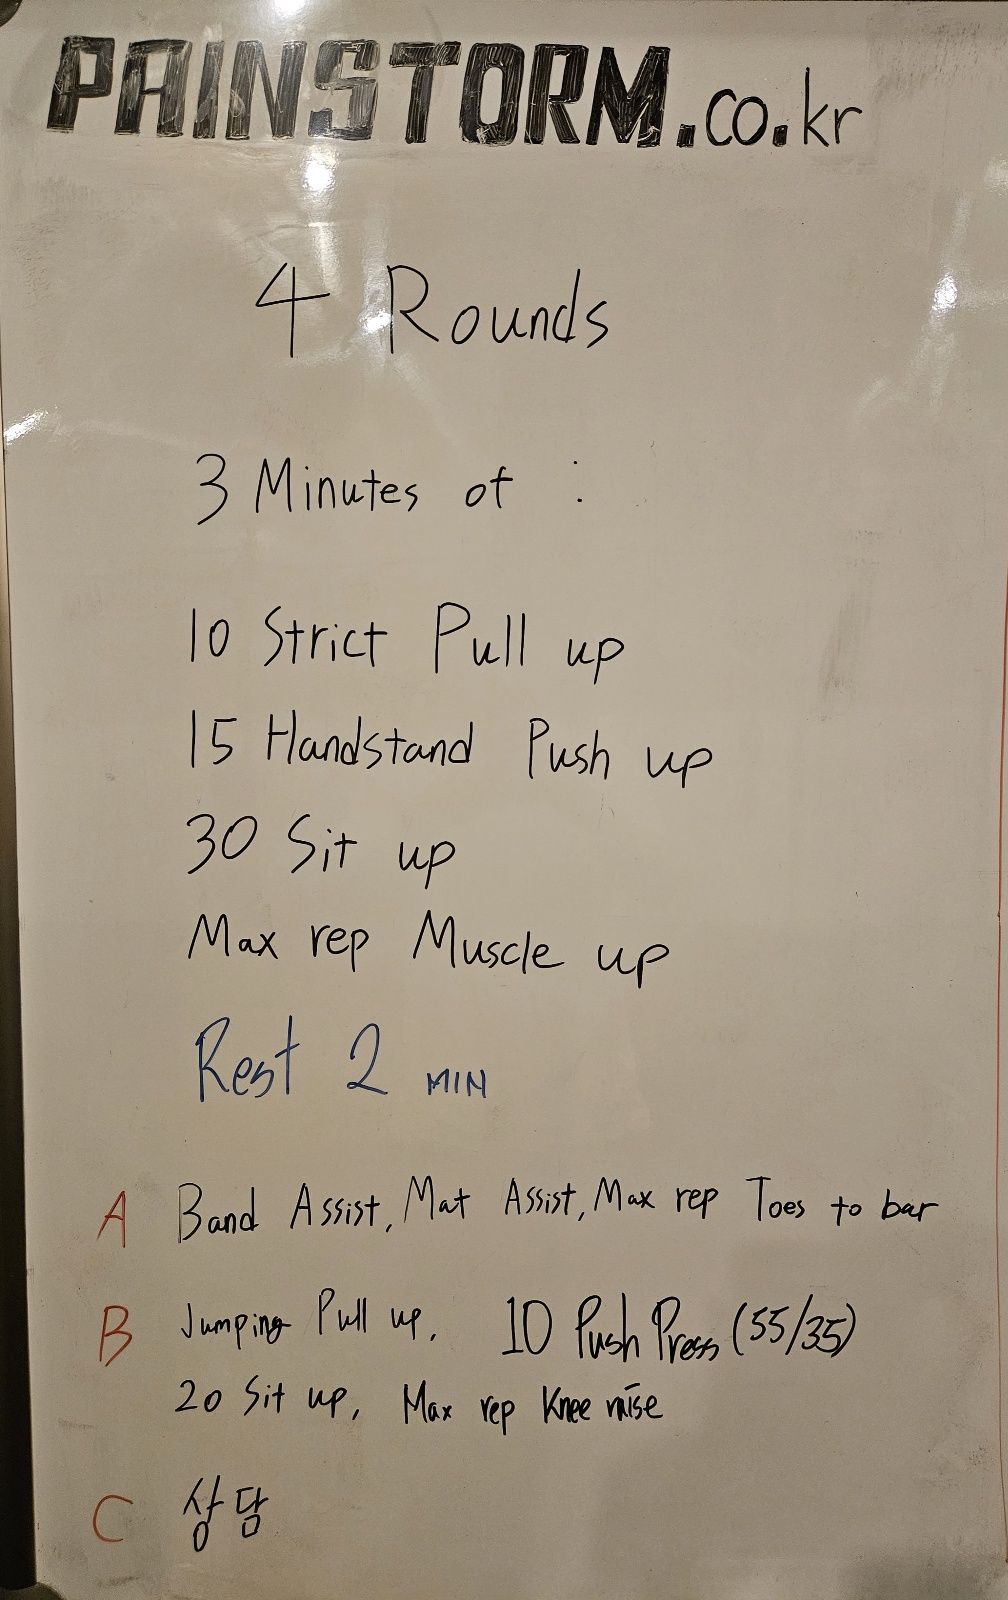 PAINSTORM.co.kr
4 Rounds
3 Minutes of :
10 Strict Pull up
15 Handstand Push up
30 Sit up
Max rep Muscle up
Rest 2 MIN
A Band Assist, Mat Assist, Max rep Toes to bar
B Jumping Pull up, 10 Push Press (55/35)
20 Sit up, Max rep Knee raise
C 상담